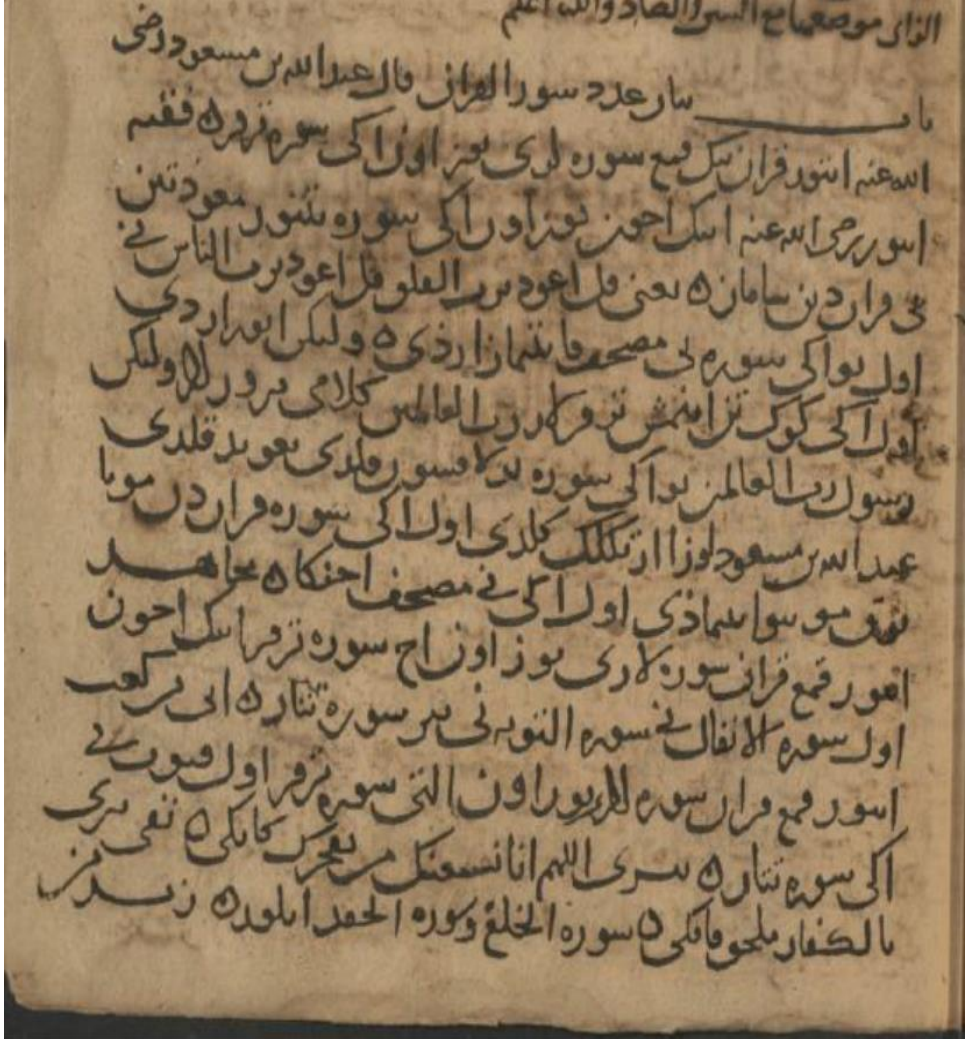 الزاى موضعها مع السين الصاد والله اعلم
باب بيان عدد سور القران قال عبد الله بن مسعود رضى
الله عنه ايتور قران نينك قمع سوره لرى يوز اون اكى سوره ترور فقيه
ايتور رضى الله عنه انينك اچون يوز اون اكى سوره تيتور معوذتين
نى قران دين ساماز يعنى قل اعوذ برب الفلق قل اعوذ برب الناس نى
اول بو اكى سوره نى مصحف قا بتيماز اردى وليكن ايور اردى
اول اكى كوك تن اينمش ترورلار رب العالمين كلامى ترورلار وليكن
رسول رب العالمين بو اكى سوره بيرلا افسون قلدى تعويذ قلدى
عبد الله بن مسعود اوزا ارتكلك كلدى اول اكى سوره قران دن مو يا
تقى مو سوا بتيمادى اول اكى نى مصحف اچنكا مجاهد
ايتور قمع قران سوره لارى يوز اون اچ سوره ترور انينك اچون
اول سوره الانفال نى سوره التوبه نى بير سوره تيتار ابى بن كعب
ايتور قمع قران سوره لارى يوز اون التى سوره ترور اول قنوت نى
اكى سوره تيتار بيرى اللهم انا نستعينك من يفجرك كاتكى تقى بيرى
بالكفار ملحق قاتكى سوره الخلع وسوره الحفد اتلور زيد بن